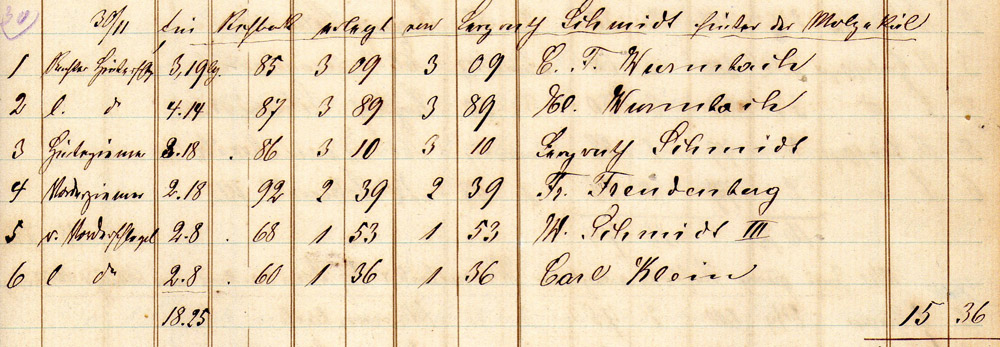 30/11 Ein Rehbock erlegt von Bergrath Schmidt hinter der
1 Rechter Hinterschlg 3,19 85 3 09 3 09 C. F. Wurmbach
2 l. do 4.14 87 3 89 3 89 Hl. Wurmbach
3 Hinterziemer 3.18 . 86 3 10 3 10 Bergrath Schmidt
4 Vorderziemer 2.18 92 2 39 2 39 Fr. Freudenberg
5 r. Vorderschlegel 2.8 . 68 1 53 1 53 W. Schmidt III
6 l do 2.8 . 60 1 36 1 36 Carl Klein
18.25 15 36